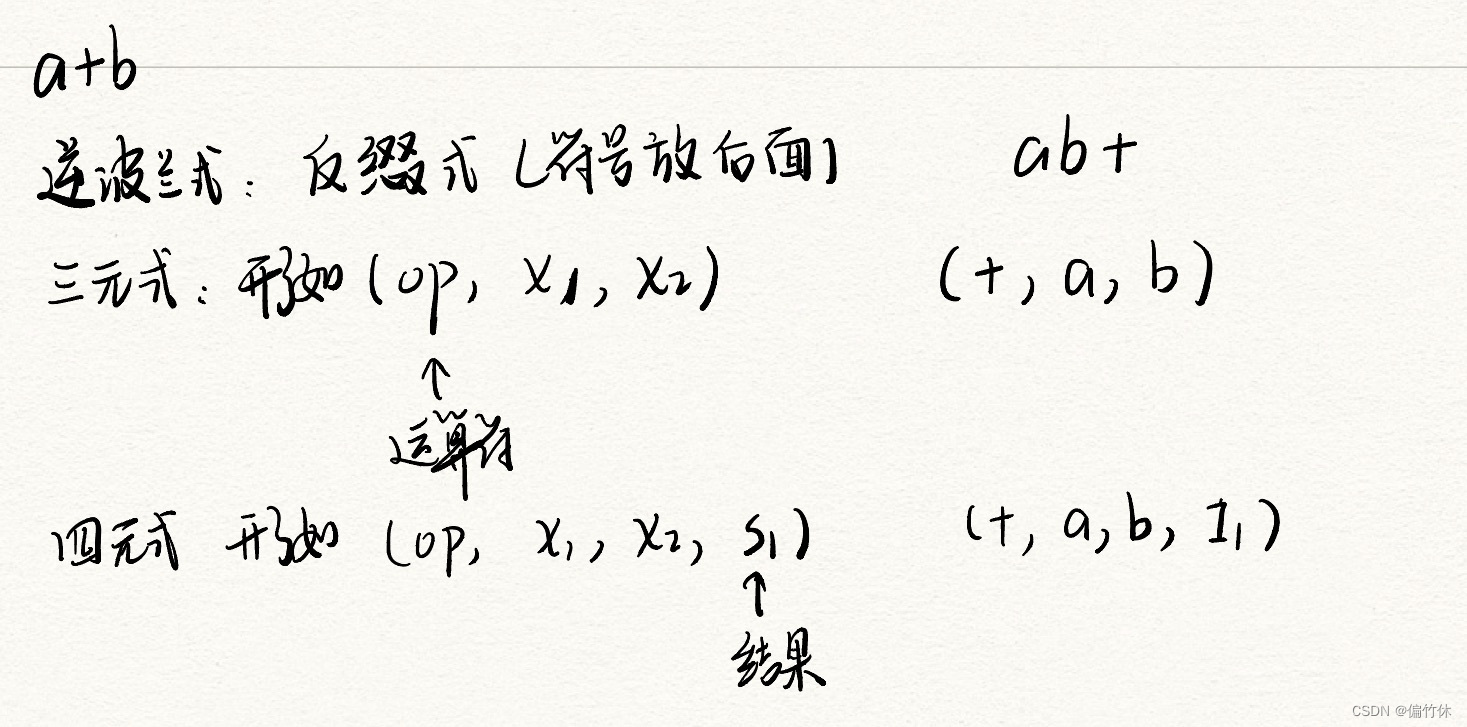 a+b
逆波兰式：反缀式 [符号放后面] ab+
三元式：形如 (op, x1, x2) (+, a, b)
↑
运算符
四元式 形如 (op, x1, x2, s1) (+, a, b, I1)
↑
结果
CSDN @偏竹休